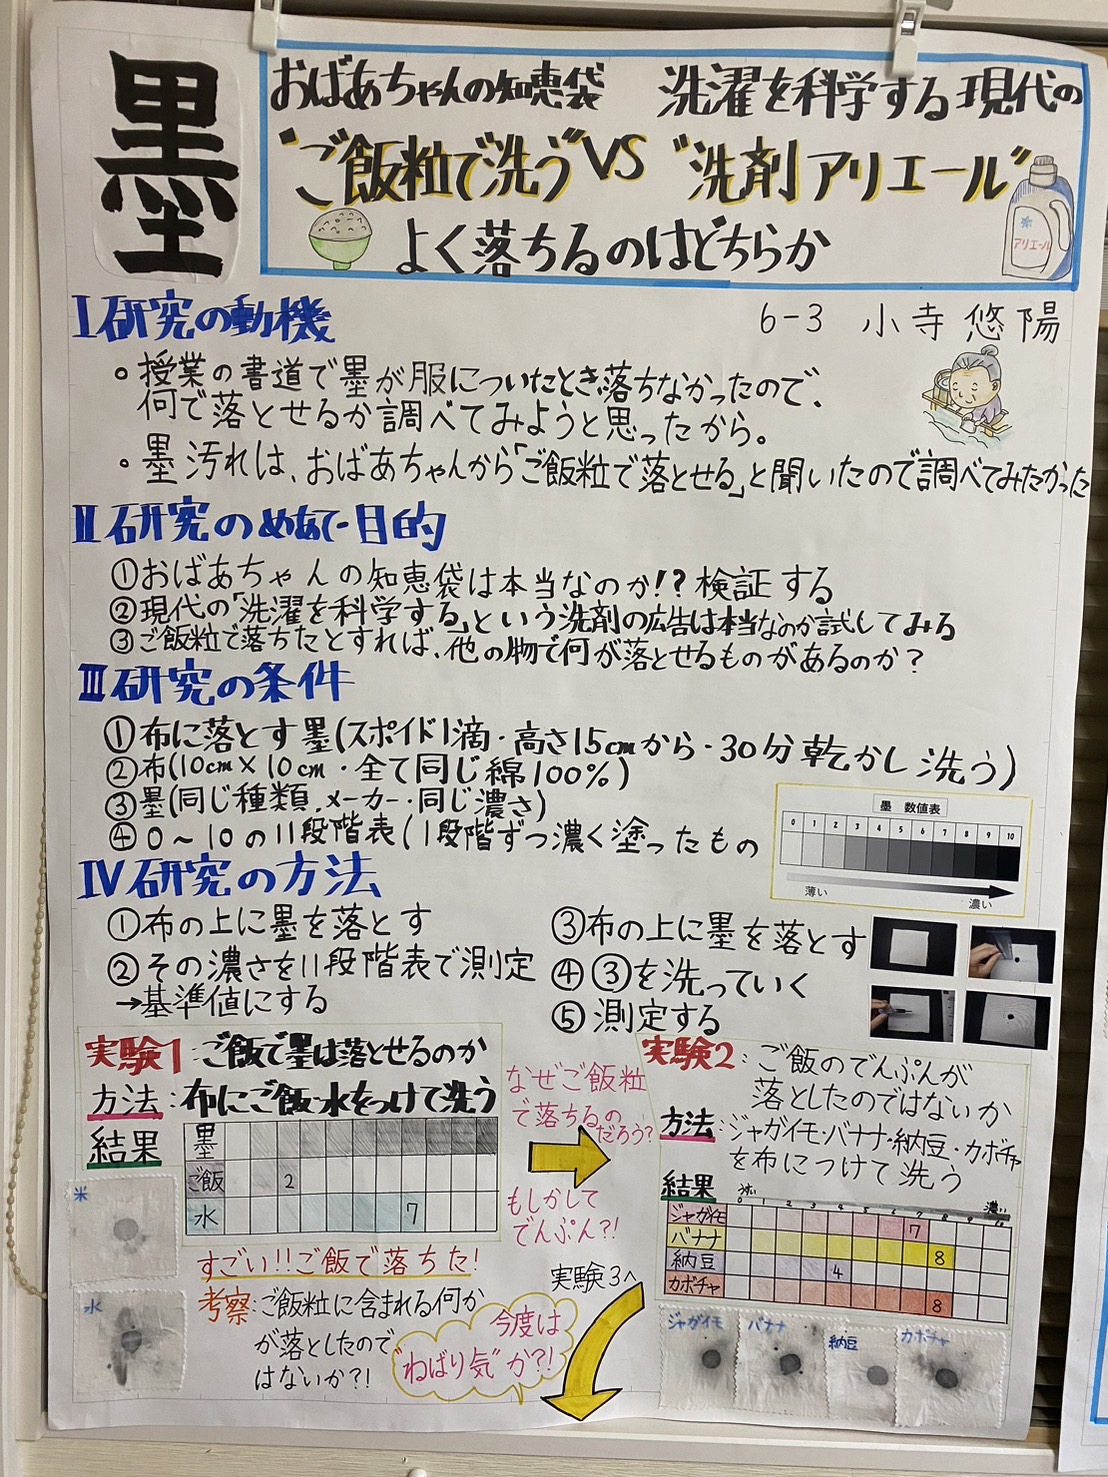 墨
おばあちゃんの知恵袋　洗濯を科学する現代の
"ご飯粒で洗う"VS "洗剤アリエール"
よく落ちるのはどちらか
アリエール
6-3 小寺悠陽
I 研究の動機
○授業の書道で墨が服についたとき落ちなかったので、
何で落とせるか調べてみようと思ったから。
・墨汚れは、おばあちゃんから「ご飯粒で落とせる」と聞いたので調べてみたかった
II 研究のめあて・目的
①おばあちゃんの知恵袋は本当なのか!?検証する
②現代の「洗濯を科学する」という洗剤の広告は本当なのか試してみる
③ご飯粒で落ちたとすれば、他の物で何が落とせるものがあるのか?
III 研究の条件
①布に落とす墨(スポイド1滴・高さ15cmから・30分乾かし洗う)
②布(10cm×10cm・全て同じ綿100%)
③墨(同じ種類、メーカー・同じ濃さ)
④0～10の11段階表(1段階ずつ濃く塗ったもの
墨 数値表
0 1 2 3 4 5 6 7 8 9 10
薄い
濃い
IV 研究の方法
①布の上に墨を落とす
②その濃さを11段階表で測定
→基準値にする
③布の上に墨を落とす
④③を洗っていく
⑤測定する
実験1:ご飯で墨は落とせるのか
方法:布にご飯・水をつけて洗う
結果
墨
ご飯 2
水 7
米
水
すごい!!ご飯で落ちた!
考察:ご飯粒に含まれる何か
が落としたので
はないか?!
なぜご飯粒
で落ちるの
だろう?
もしかして
でんぷん?!
実験3へ
今度は
"ねばり気"か?!
実験2:ご飯のでんぷんが
落としたのではないか
方法:ジャガイモ・バナナ・納豆・カボチャ
を布につけて洗う
結果
うすい 濃い
ジャガイモ 7
バナナ 8
納豆 4
カボチャ 8
ジャガイモ
バナナ
納豆
カボチャ